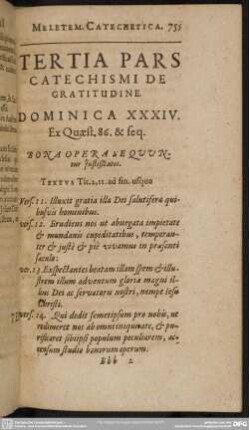 MELETEM. CATECHETICA. 755
TERTIA PARS
CATECHISMI DE
GRATITUDINE.
DOMINICA XXXIV.
Ex Quæst. 86. & seq.
BONA OPERA SEQUUN-
tur justificatos.
TEXTUS Tit. 2. 11. ad fin. usque
Vers. 11. Illuxit gratia illa Dei salutifera qui-
busvis hominibus.
vers. 12. Erudiens nos ut abnegata impietate
& mundanis cupiditatibus, temperan-
ter & justè & piè vivamus in præsenti
seculo:
ver. 13 Exspectantes beatam illam spem & illu-
strem illum adventum gloriæ magni il-
lius Dei ac servatoris nostri, nempe Iesu
Christi.
vers. 14. Qui dedit semetipsum pro nobis, ut
redimeret nos ab omni iniquitate, & pu-
rificaret sibiipsi populum peculiarem, ac-
censum studio bonorum operum.
Bbb 2